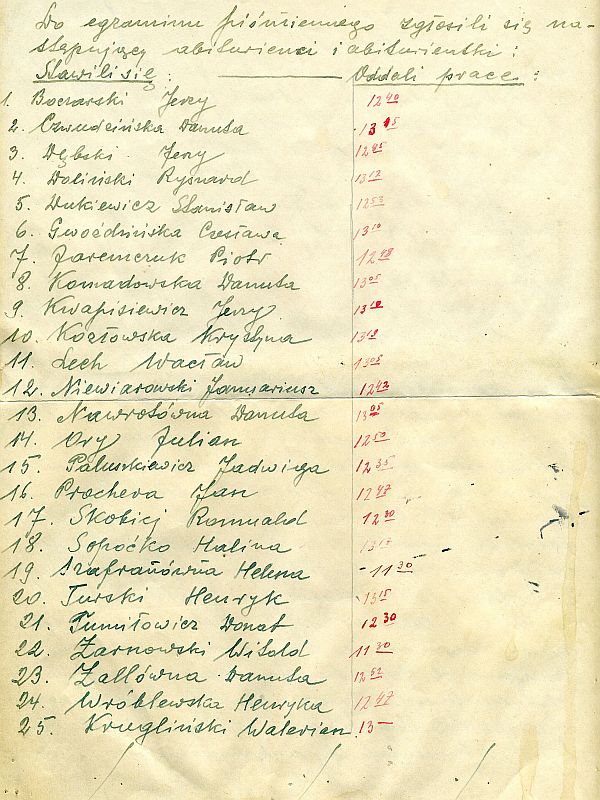 Do egzaminu piśmiennego zgłosili się na-
stępujący abiturienci i abiturientki:
Stawili się: Oddali prace:
1. Boczarski Jerzy 12 40
2. Czwudzińska Danuta 13 15
3. Dębski Jerzy 12 45
4. Doliński Ryszard 13 12
5. Dukiewicz Stanisław 12 53
6. Gwoździńska Czesława 13 10
7. Jaremczuk Piotr 12 48
8. Komadowska Danuta 13 05
9. Kwapisiewicz Jerzy 13 10
10. Kozłowska Krystyna 13 13
11. Lech Wacław 13 05
12. Niewiarowski Januariusz 12 42
13. Nawrotówna Danuta 13 05
14. Ory Julian 12 50
15. Paluszkiewicz Jadwiga 12 35
16. Prochera Jan 12 47
17. Skobiej Romuald 12 30
18. Sopoćko Halina 13 17
19. Szafrańówna Helena 11 30
20. Turski Henryk 13 15
21. Tumiłowicz Donat 12 30
22. Żarnowski Witold 11 30
23. Zallówna Danuta 12 52
24. Wróblewska Henryka 12 47
25. Krugliński Walerian 13 —